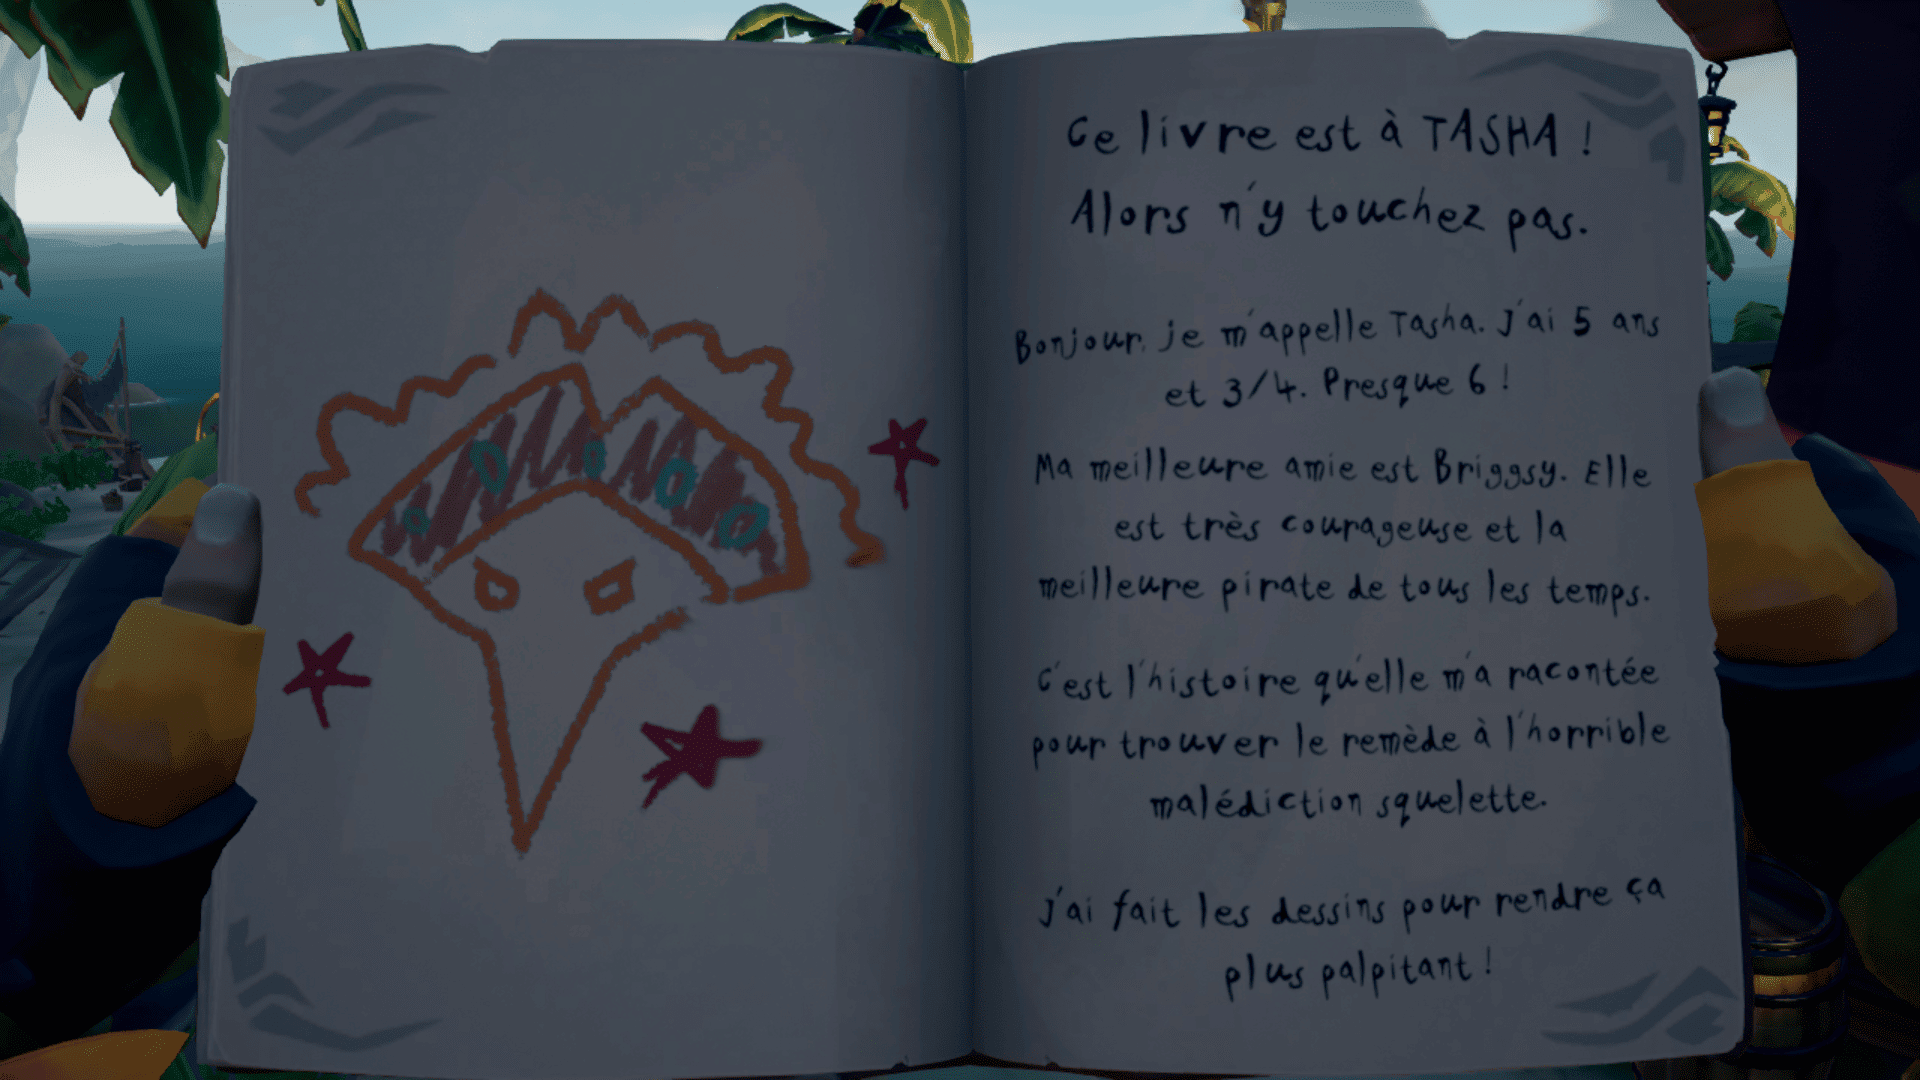 Ce livre est à TASHA !
Alors n'y touchez pas.
Bonjour, je m'appelle Tasha. J'ai 5 ans
et 3/4. Presque 6 !
Ma meilleure amie est Briggsy. Elle
est très courageuse et la
meilleure pirate de tous les temps.
C'est l'histoire qu'elle m'a racontée
pour trouver le remède à l'horrible
malédiction squelette.
J'ai fait les dessins pour rendre ça
plus palpitant !